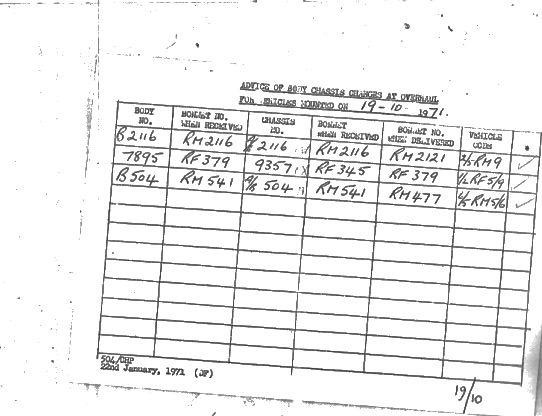 ADVICE OF BODY CHASSIS CHANGES AT OVERHAUL
FOR VEHICLES MOUNTED ON 19-10-1971.
BODY NO. BONNET NO. WHEN RECEIVED CHASSIS NO. BONNET WHEN RECEIVED BONNET NO. WHEN DELIVERED VEHICLE CODE *
B2116 RM2116 2116 RM2116 RM2121 2/5RM9 ✓
7895 RF379 9357 RF345 RF379 1/2RF5/9 ✓
B504 RM541 504 RM541 RM477 RM5/6 ✓
504/CHP
22nd January, 1971 (DF)
19/10